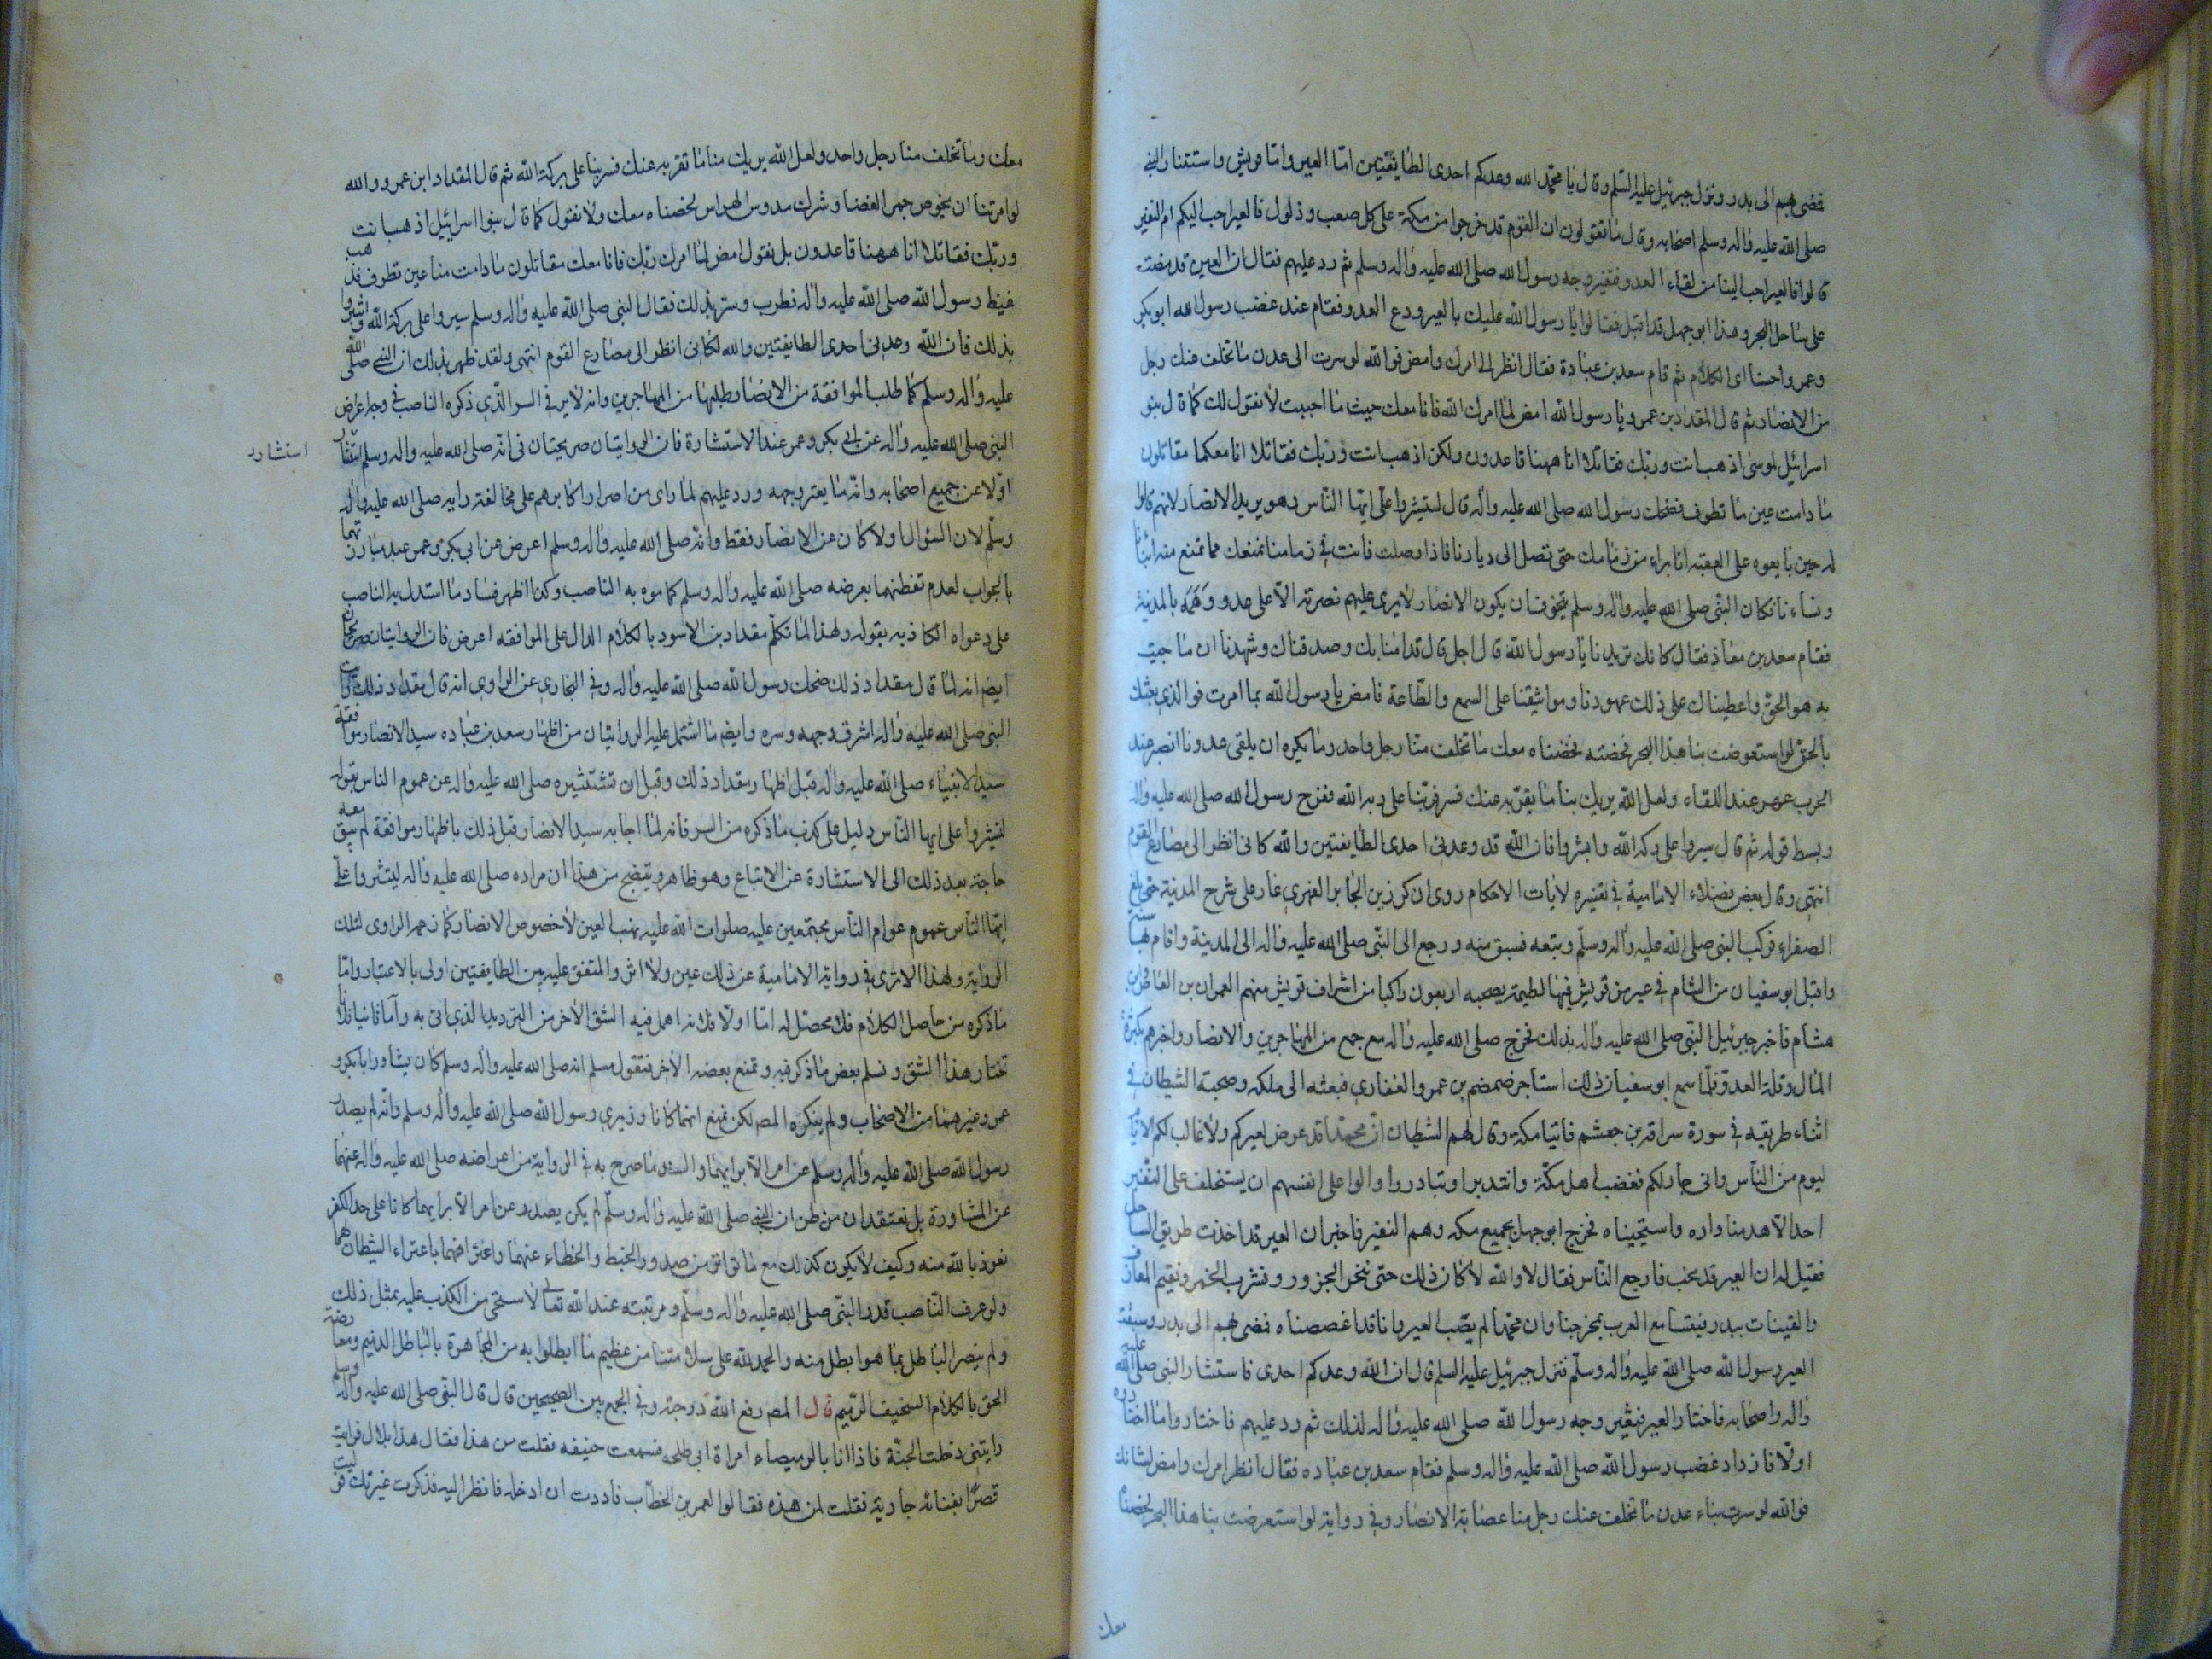 فمضى بهم الى بدر ونزل جبرئيل عليه السلم وقال يا محمد الله وعدكم احدى الطايفتين اما العير واما قريش واستشار النبي
صلى الله عليه واله وسلم اصحابه وقال ما تقولون ان القوم قد خرجوا من مكة على كل صعب وذلول فالعير احب اليكم ام النفير
قالوا فالعير احب الينا من لقاء العدو فتغير وجه رسول الله صلى الله عليه واله وسلم ثم رد عليهم فقال ان العير قد مضت
على ساحل البحر وهذا ابو جهل قد اقبل فقالوا يا رسول الله عليك بالعير ودع العدو فقام عند غضب رسول الله ابو بكر
وعمر واحسنا اى الكلام ثم قام سعد بن عبادة فقال انظر الى امرك وامض فو الله لو سرت الى عدن ما تخلف عنك رجل
من الانصار ثم قال المقداد بن عمرو يا رسول الله امض لما امرك الله فانا معك حيث ما احببت لا نقول لك كما قال بنو
اسرائيل لموسى اذهب انت وربك فقاتلا انا ههنا قاعدون ولكن اذهب انت وربك فقاتلا انا معكما مقاتلون
ما دامت عين منا تطوف فضحك رسول الله صلى الله عليه واله قال ليشيروا على ايها الناس وهو يريد الانصار لانهم قالوا
له حين بايعوه على العقبة انا براء من ذمامك حتى تصل الى ديارنا فاذا وصلت فانت في ذمامنا نمنعك مما نمنع منه ابنائنا
ونساءنا فكان النبي صلى الله عليه واله وسلم يتخوف ان يكون الانصار لا يرى عليهم نصرته الا على عدو دهمه بالمدينة
فقام سعد بن معاذ فقال كانك تريدنا يا رسول الله قال اجل قال قد امنا بك وصدقناك وشهدنا ان ما جئت
به هو الحق واعطيناك على ذلك عهودنا ومواثيقنا على السمع والطاعة فامض يا رسول الله بما امرت فو الذي بعثك
بالحق لو استعرضت بنا هذا البحر فخضته لخضناه معك ما تخلف منا رجل واحد وما نكره ان يلقى عدونا انا لصبر عند
الحرب عند اللقاء ولعل الله يريك بنا ما يقر به عنك فسر بنا على بركة الله ففرح رسول الله صلى الله عليه واله
وبسط قوله ثم قال سيروا على بركة الله وابشروا فان الله قد وعدني احدى الطايفتين والله كاني انظر الى مصارع القوم
انتهى وقال بعض فضلاء الامامية في تفسيره لايات الاحكام روى ان كرز بن جابر الفهري غار على سرح المدينة حتى بلغ
الصفراء فركب النبي صلى الله عليه واله وسلم وتبعه فسبق منه ورجع الى النبي صلى الله عليه واله الى المدينة واقام بها
واقبل ابو سفيان من الشام في عير من قريش فيها لطيمة يصحبه اربعون راكبا من اشراف قريش منهم العمرو بن العاص
هشام فاخبر جبرئيل النبي صلى الله عليه واله بذلك فخرج صلى الله عليه واله مع جمع من المهاجرين والانصار واخبرهم بكثرة
المال وقلة العدو فلما سمع ابو سفيان ذلك استاجر ضمضم بن عمرو الغفاري فبعثه الى مكة وصحبه الشيطان في
اثناء طريقه في سورة سراقة بن جعشم فاتيا مكة وقال لهم الشيطان ان محمدا قد عرض لعيركم ولا غالب لكم
اليوم من الناس واني جار لكم فغضب اهل مكة وانتدبوا وتبادروا وآلوا على انفسهم ان يستخلف على النفير
احد الا هدمنا داره واستبحيناه فخرج ابو جهل بجميع مكة وهم النفير فاخبر ان العير قد اخذت طريق الساحل
فقيل له ان العير قد نجت فارجع الناس فقال لا والله لا كان ذلك حتى ننحر الجزور ونشرب الخمر ونقيم المعازف
والقينات ببدر فيتسامع العرب بمخرجنا وان محمدا لم يصب العير وانا قد اغصصناه فمضى بهم الى بدر وسبقت
العير رسول الله صلى الله عليه واله وسلم فنزل جبرئيل عليه السلم قال ان الله وعدكم احدى فاستشار النبي صلى الله عليه
واله واصحابه فاختار العير فتغير وجه رسول الله صلى الله عليه واله لذلك ثم رد عليهم فاختاروا ما اختاروه
اولا فازداد غضب رسول الله صلى الله عليه واله وسلم فقام سعد بن عباده فقال انظر امرك وامض لشانك
فوالله لو سرت بناء عدن ما تخلف عنك رجل منا عصابة الانصار وفي رواية لو استعرضت بنا هذا البحر لخضناه
معك
معك وما تخلف منا رجل واحد ولعل الله يريك منا ما تقر به عنك فسر بنا على بركة الله ثم قال المقداد ابن عمرو والله
لو امرتنا ان نخوض جمر الغضا وشرك لخضناه معك ولا نقول كما قال بنوا اسرائيل اذهب انت
وربك فقاتلا انا ههنا قاعدون بل نقول امض لما امرك ربك فانا معك مقاتلون ما دامت منا عين تطوف فذهب
غيظ رسول الله صلى الله عليه واله فطرب وسر بذلك فقال النبي صلى الله عليه واله وسلم سيروا على بركة الله وابشروا
بذلك فان الله وعدني احدى الطايفتين والله لكاني انظر الى مصارع القوم انتهى ولقد ظهر بذلك ان النبي صلى الله
عليه واله وسلم كما طلب الموافقة من الانصار طلبها من المهاجرين وانه لا بس في السر الذي ذكره الناصب في وجه اعراض
النبي صلى الله عليه واله عن ابي بكر وعمر عند الاستشارة فان الروايتان صريحتان في انه صلى الله عليه واله وسلم استشار
استشارد
اولا عن جميع اصحابه وانه ما يغير وجهه ورد عليهم لما راى من اصرار اكابرهم على مخالفة رايه صلى الله عليه واله
وسلم لان السؤال اولا كان عن الانصار فقط وانه صلى الله عليه واله وسلم اعرض عن ابي بكر وعمر عند مبادرتهما
بالجواب لعدم تفطنهما بعرضه صلى الله عليه واله وسلم كما موه به الناصب وكذا اظهر فساد ما استدل به الناصب
على دعواه الكاذبه بقوله ولهذا لما تكلم مقداد بن الاسود بالكلام الدال على الموافقه اعرض فان الروايتان صريحتان
ايضا انه لما قال مقداد ذلك ضحك رسول الله صلى الله عليه واله وفي البخاري عن الراوى انه قال مقداد ذلك
النبي صلى الله عليه واله اشرق وجهه وسره وايضا ما اشتمل عليه الروايتان من اظهار سعد بن عباده سيد الانصار موافقة
سيد الانبياء صلى الله عليه واله قبل اظهار مقداد ذلك وقبل ان صلى الله عليه واله عن عموم الناس بقوله
ليشيروا على ايها الناس دليل على كذب ما ذكره من السر فانه لما اجابه سيد الانصار قبل ذلك باظهار موافقة لم يبق معه
حاجة بعد ذلك الى الاستشارة عن الاتباع وهو ظاهر ويتضح من هذا ان مراده صلى الله عليه واله ليشيروا على
ايها الناس عموم عوام الناس مجتمعين عليه صلوات الله عليه لا خصوص الانصار كما زعم الراوى لتلك
الرواية ولهذا لا ترى في رواية الامامية عن ذلك عين ولا اثر والمتفق عليه بين الطايفتين اولى بالاعتبار واما
ما ذكره من حاصل الكلام فلا محصل له اما اولا فلانه اهمل فيه الشق الاخر من الترديد الذي اتى به واما ثانيا فلانا
نختار هذا الشق ونسلم بعض ما ذكر فيه ونمنع بعضه الاخر فنقول مسلم انه صلى الله عليه واله وسلم كان يشاور ابا بكر و
عمر وغيرهما من الاصحاب ولم ينكره المص لكن نمنع انهما كانا وزيري رسول الله صلى الله عليه واله وسلم وانه لم يصدر
رسول الله صلى الله عليه واله وسلم عن امر الا برايهما والسند ما صرح به في الرواية من اعراضه صلى الله عليه واله عنهما
عن المشاورة بل نعتقد ان من ظن ان النبي صلى الله عليه واله وسلم لم يكن يصدر عن امر الا برايهما كان على حد الكفر
نعوذ بالله منه وكيف لا يكون كذلك مع ما تواتر من صدور الخبط والخطاء عنهما واعترافهما باعتراء الشيطان لهما
ولو عرف الناصب قدر النبي صلى الله عليه واله وسلم ومرتبته عند الله تعالى لاستحى من الكذب عليه بمثل ذلك
ولم ينصر الباطل بما هو ابطل منه والحمد لله على ما ابطلوا به من المجاهرة بالباطل الذميم ومعارضة
الحق بالكلام السخيف الرميم قال المص رفع الله درجته وفي الجمع بين الصحيحين قال قال النبي صلى الله عليه واله وسلم
رايتني دخلت الجنة فاذا انا بالرميصاء امراة ابي طلحه فسمعت خشفه فقلت من هذا فقال هذا بلال فرايت
قصرا بفنائه جارية فقلت لمن هذه فقالوا لعمر بن الخطاب فاردت ان ادخله فانظر اليه فذكرت غيرتك فوليت